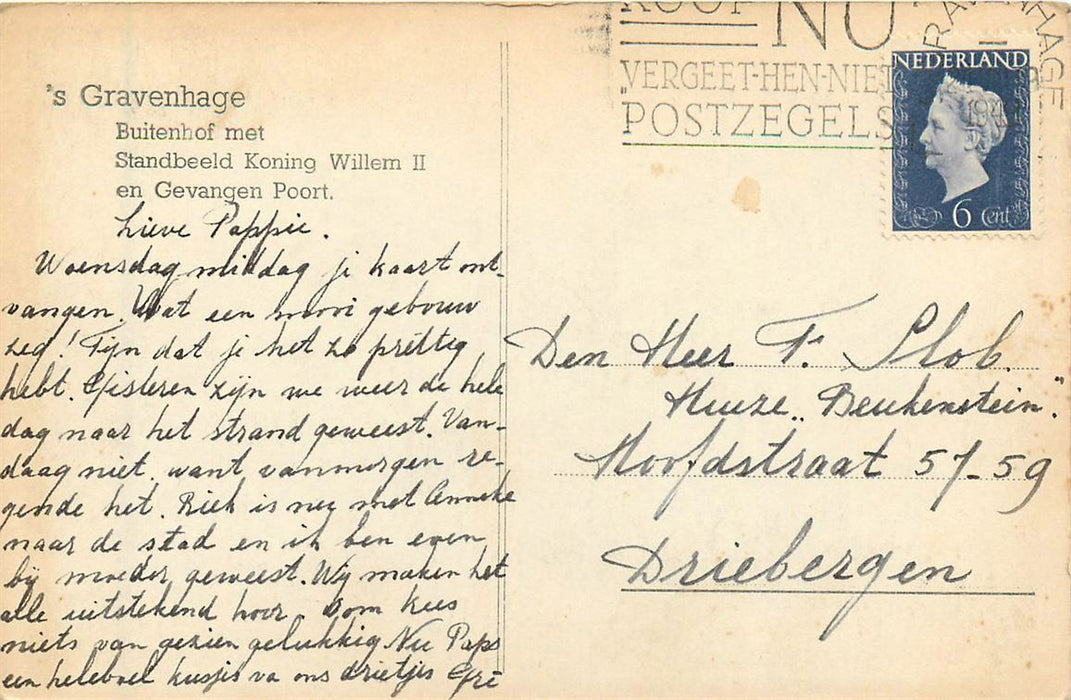 's Gravenhage
Buitenhof met
Standbeeld Koning Willem II
en Gevangen Poort.
Lieve Pappie.
Woensdag middag je kaart ont-
vangen. Wat een mooi gebouw
zeg! Fijn dat je het zo prettig
hebt. Gisteren zijn we weer de hele
dag naar het strand geweest. Van-
daag niet, want vanmorgen re-
gende het. Riek is nu met Anneke
naar de stad en ik ben even
bij moeder geweest. Wij maken het
alle uitstekend hoor. Oom Kees
niets van gezien gelukkig Nu Paps
een heleboel kusjes va ons drietjes Gré
KOOP NU
VERGEET-HEN-NIET
POSTZEGELS
GRAVENHAGE
194
NEDERLAND
6 Cent
Den Heer F. Slob.
Huize "Beukenstein".
Hoofdstraat 57-59
Driebergen